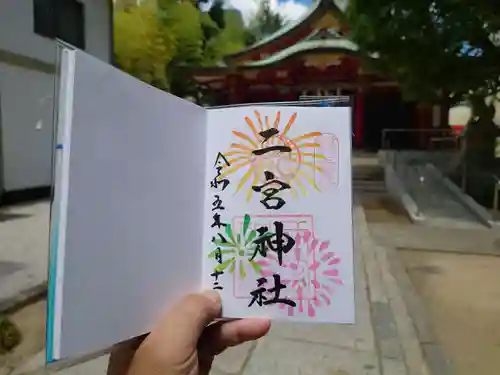 二宮神社
令和五年八月十二